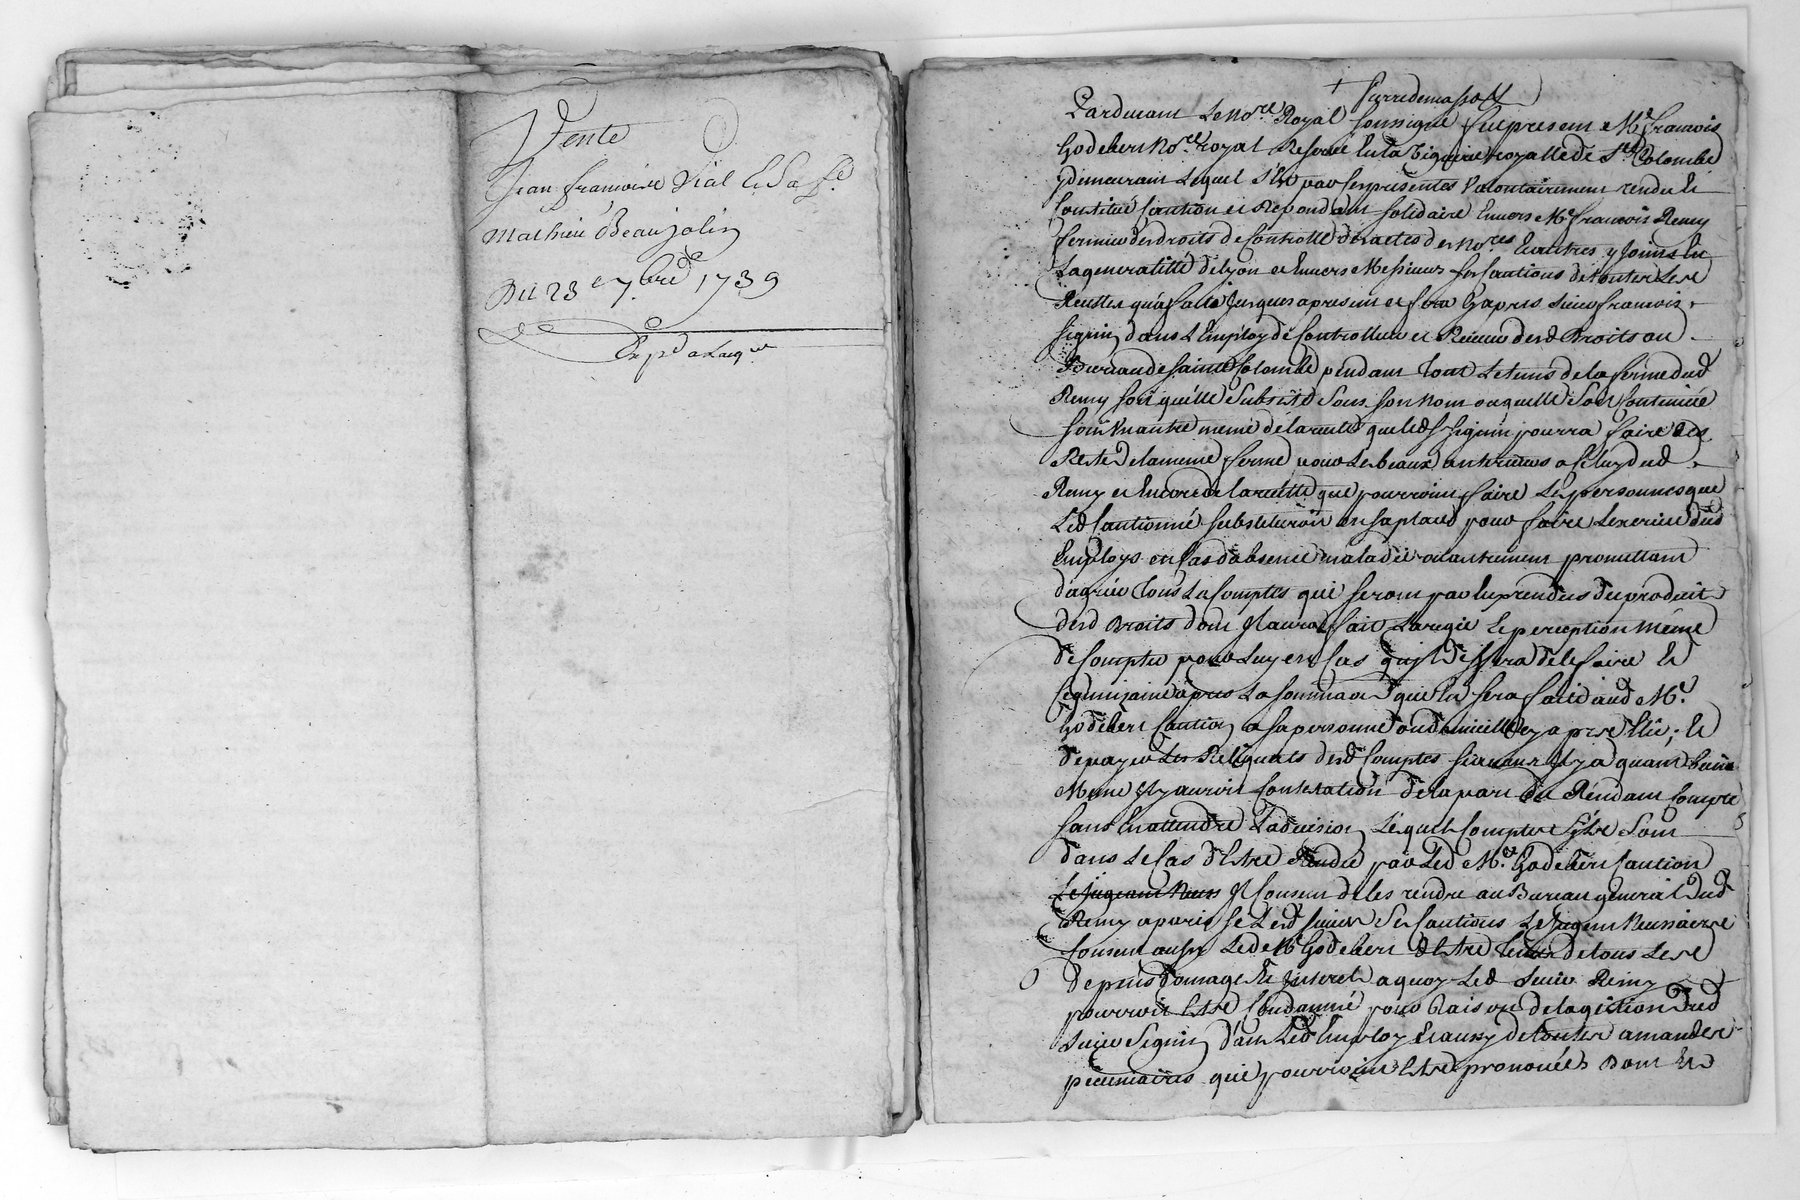 Vente
Jean francoise Vial Et Sa fe
Mathieu Beaujolin
Du 23e 7bre 1739
Expd a Lacqr
Pardevant Le Nore Royal soussigné fut present Me francois
Godebert Nore royal Reservé En la Viguerie royalle de Ste Colombe
y demeurant Lequel s'est par ses presentes Volontairement rendu Et
Constitué Caution et Repondant solidaire Envers Me francois Remy
fermier des droits de Controlle des actes des Nores Et autres y Joints En
La generalitté de Lyon et Envers Messieurs ses Cautions de toutes Les
Recettes qu'a faite Jusques apresent et fera Cy apres sieur francois
Seguin dans L'Employ de Controlleur et Receveur desd Droits au
Bureau de Sainte Colombe pendant tout Le tems de la ferme dud
Remy soit qu'elle Subsiste Sous son Nom ou quelle Soit Continuée
sous Un autre meme de la recette que led sr Seguin pourra faire des
Reste de la meme ferme pour Les beaux anterieurs a Celuy dud
Remy et Encore de la recette que pourroient faire Les personnes que
Led Cautionné substitueroit en sa place pour faire L'exercice dud
Employs en Cas d'absence maladie ou autrement promettant
d'agréer tous Les Comptes qui seront par luy rendus du produit
desd Droits dont Il aura fait La regie Et perception Même
de Compter pour Luy en Cas qu'il differa de le faire Et
Ce quinzaine apres La sommaon que En sera faite aud Me
Godebert Caution a sa personne ou domicille cy apres Elu; Et
de payer Les Reliquats desd Comptes si aucun Il y a quant bien
Meme Il y auroit Contestation de la part du Rendant Compte
sans En attendre La decision Lesquels Comptes S'ils Sont
dans Le Cas d'Estre Rendu par Led Me Godebert Caution
Le Jugeant Necess Il Consent de les rendre au Bureau general dud
Remy a paris Se Lesd sieurs Ses Cautions Le Jugent Necessaire
Consent aussy Led Me Godebert d'Estre tenu de tous Les
depens domage Et Interet a quoy Led Sieur Remy
pourroit Estre Condamné pour Raison de la gestion dud
Sieur Seguin dans Led Employ Et aussy de toutes amandes
pecuniaires qui pourroient Estre prononcées Dont Et